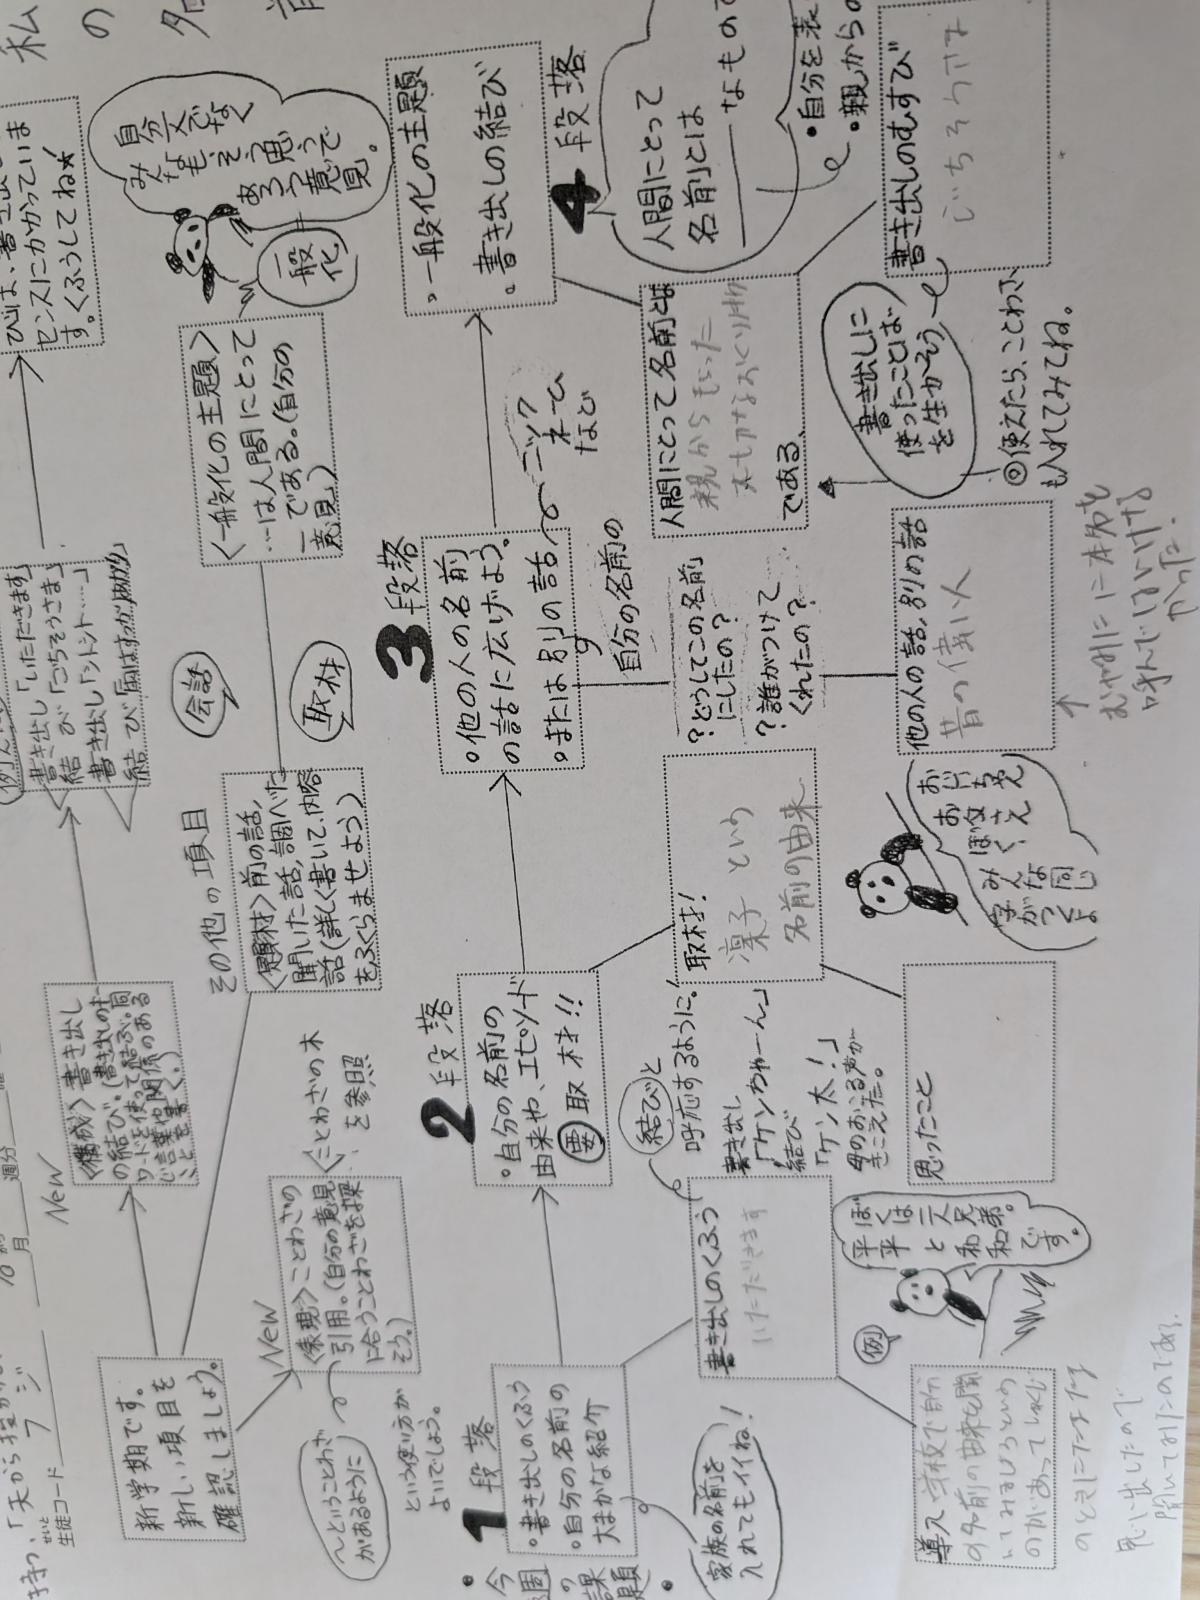 私の名前
持つ、「天から授か
生徒コード フジ
月 週分
新学期です。
新しい項目を
確認しましょう。
New
〈構成〉書き出し
の結び。(書き出しのキー
ワードを使って結ぶ。同
じ言葉や関係のある
ことを書く。)
書き出し「いただきます」
結び「ごちそうさま」
書き出し「シトシト……」
結び
びは、書き出し
センスにかかっていま
す。くふうしてね★
New
〈表現〉ことわざの
引用。(自分の意見
に合うことわざを探
そう。)
〈ことわざの木
を参照
〜ということわざ
があるように
という使い方が
よいでしょう。
その他の項目
〈題材〉前の話、
聞いた話、調べた
話(詳しく書いて、内容
をふくらませよう)
会話
取材
〈一般化の主題〉
…は人間にとって
―である。(自分の
意見)
一般化
自分だけでなく
みんなも、そう思う
であろう意見。
・今週の課題・
1段落
・書き出しのくふう
・自分の名前の
大まかな紹介
家族の名前を
入れてもイイね!
2段落
・自分の名前の
由来や、エピソード
要取材!!
3段落
・他の人の名前
の話に広げよう。
・または別の話
ニック
ネーム
など
4段落
・一般化の主題
・書き出しの結び
人間にとって
名前とは
―なもので
・自分を表
・親からの
書き出しのくふう
いただきます
結びと
呼応するように!
書き出し
「ケンちゃーん」
結び
「ケン太!」
母のおこる声が
きこえた。
取材!
凜子という
名前の由来
自分の名前の
?どうしてこの名前
にしたの?
?誰がつけて
くれたの?
人間にとって名前とは
親からもらった
大切なおくり物
である。
書き出しに
使ったことば
を生かそう
◎使えたら、ことわざ
も入れてみてね。
書き出しのむすび
ごちそうさま
導入
学校で自分
の名前の由来を聞
のがあって
思い出したので
聞いてみたのである。
例
ぼくは二人兄弟。
平平と和和
です。
思ったこと
おじいちゃん
お父さん
ぼく、
みんな同じ
字がつくよ
他の人の話、別の話
昔の偉い人
むやみに本名を
呼んではいけな
かった。